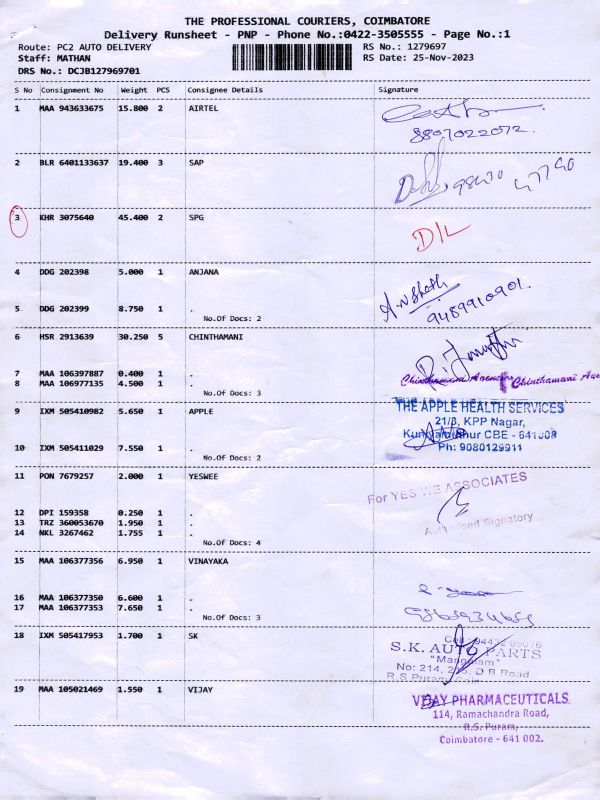 THE PROFESSIONAL COURIERS, COIMBATORE
Delivery Runsheet - PNP - Phone No.:0422-3505555 - Page No.:1
Route: PC2 AUTO DELIVERY RS No.: 1279697
Staff: MATHAN RS Date: 25-Nov-2023
DRS No.: DCJB127969701
S No Consignment No Weight PCS Consignee Details Signature
1 MAA 943633675 15.800 2 AIRTEL
8807022072.
2 BLR 6401133637 19.400 3 SAP
3 KHR 3075640 45.400 2 SPG D/L
4 DDG 202398 5.000 1 ANJANA
5 DDG 202399 8.750 1 .
No.Of Docs: 2
9489910901.
6 HSR 2913639 30.250 5 CHINTHAMANI
7 MAA 106397887 0.400 1 .
8 MAA 106977135 4.500 1 .
Chinthamani Agencies Chinthamani Age
No.Of Docs: 3
9 IXM 505410982 5.650 1 APPLE
THE APPLE HEALTH SERVICES
21/8, KPP Nagar,
CBE - 641008
10 IXM 505411029 7.550 1 .
Ph: 9080129911
No.Of Docs: 2
11 PON 7679257 2.000 1 YESWEE
For YES WE ASSOCIATES
12 DPI 159358 0.250 1 .
13 TRZ 360053670 1.950 1 .
14 NKL 3267462 1.755 1 .
Authorised Signatory
No.Of Docs: 4
15 MAA 106377356 6.950 1 VINAYAKA
16 MAA 106377350 6.600 1 .
17 MAA 106377353 7.650 1 .
No.Of Docs: 3
18 IXM 505417953 1.700 1 SK
Cell : 94432 09076
S.K. AUTO PARTS
No: 214, D B Road
R.S.Puram
19 MAA 105021469 1.550 1 VIJAY
VIJAY PHARMACEUTICALS
114, Ramachandra Road,
R.S. Puram,
Coimbatore - 641 002.